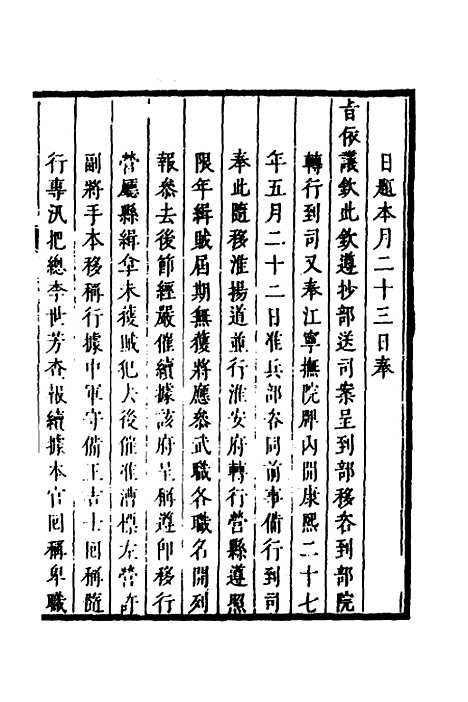 日題本月二十三日奉
旨依議欽此欽遵抄部送司案呈到部移咨到部院
轉行到司又奉江寧撫院牌內開康熙二十七
年五月二十二日准兵部咨同前事備行到司
奉此隨移淮揚道並行淮安府轉行營縣遵照
限年緝賊屆期無獲將應參武職各職名開列
報參去後節經嚴催續據該府呈稱遵即移行
營廳縣緝拿未獲賊犯去後催准漕標左營許
副將手本移稱行據中軍守備王吉士回稱隨
行專汛把總李世芳查報續據本官回稱卑職